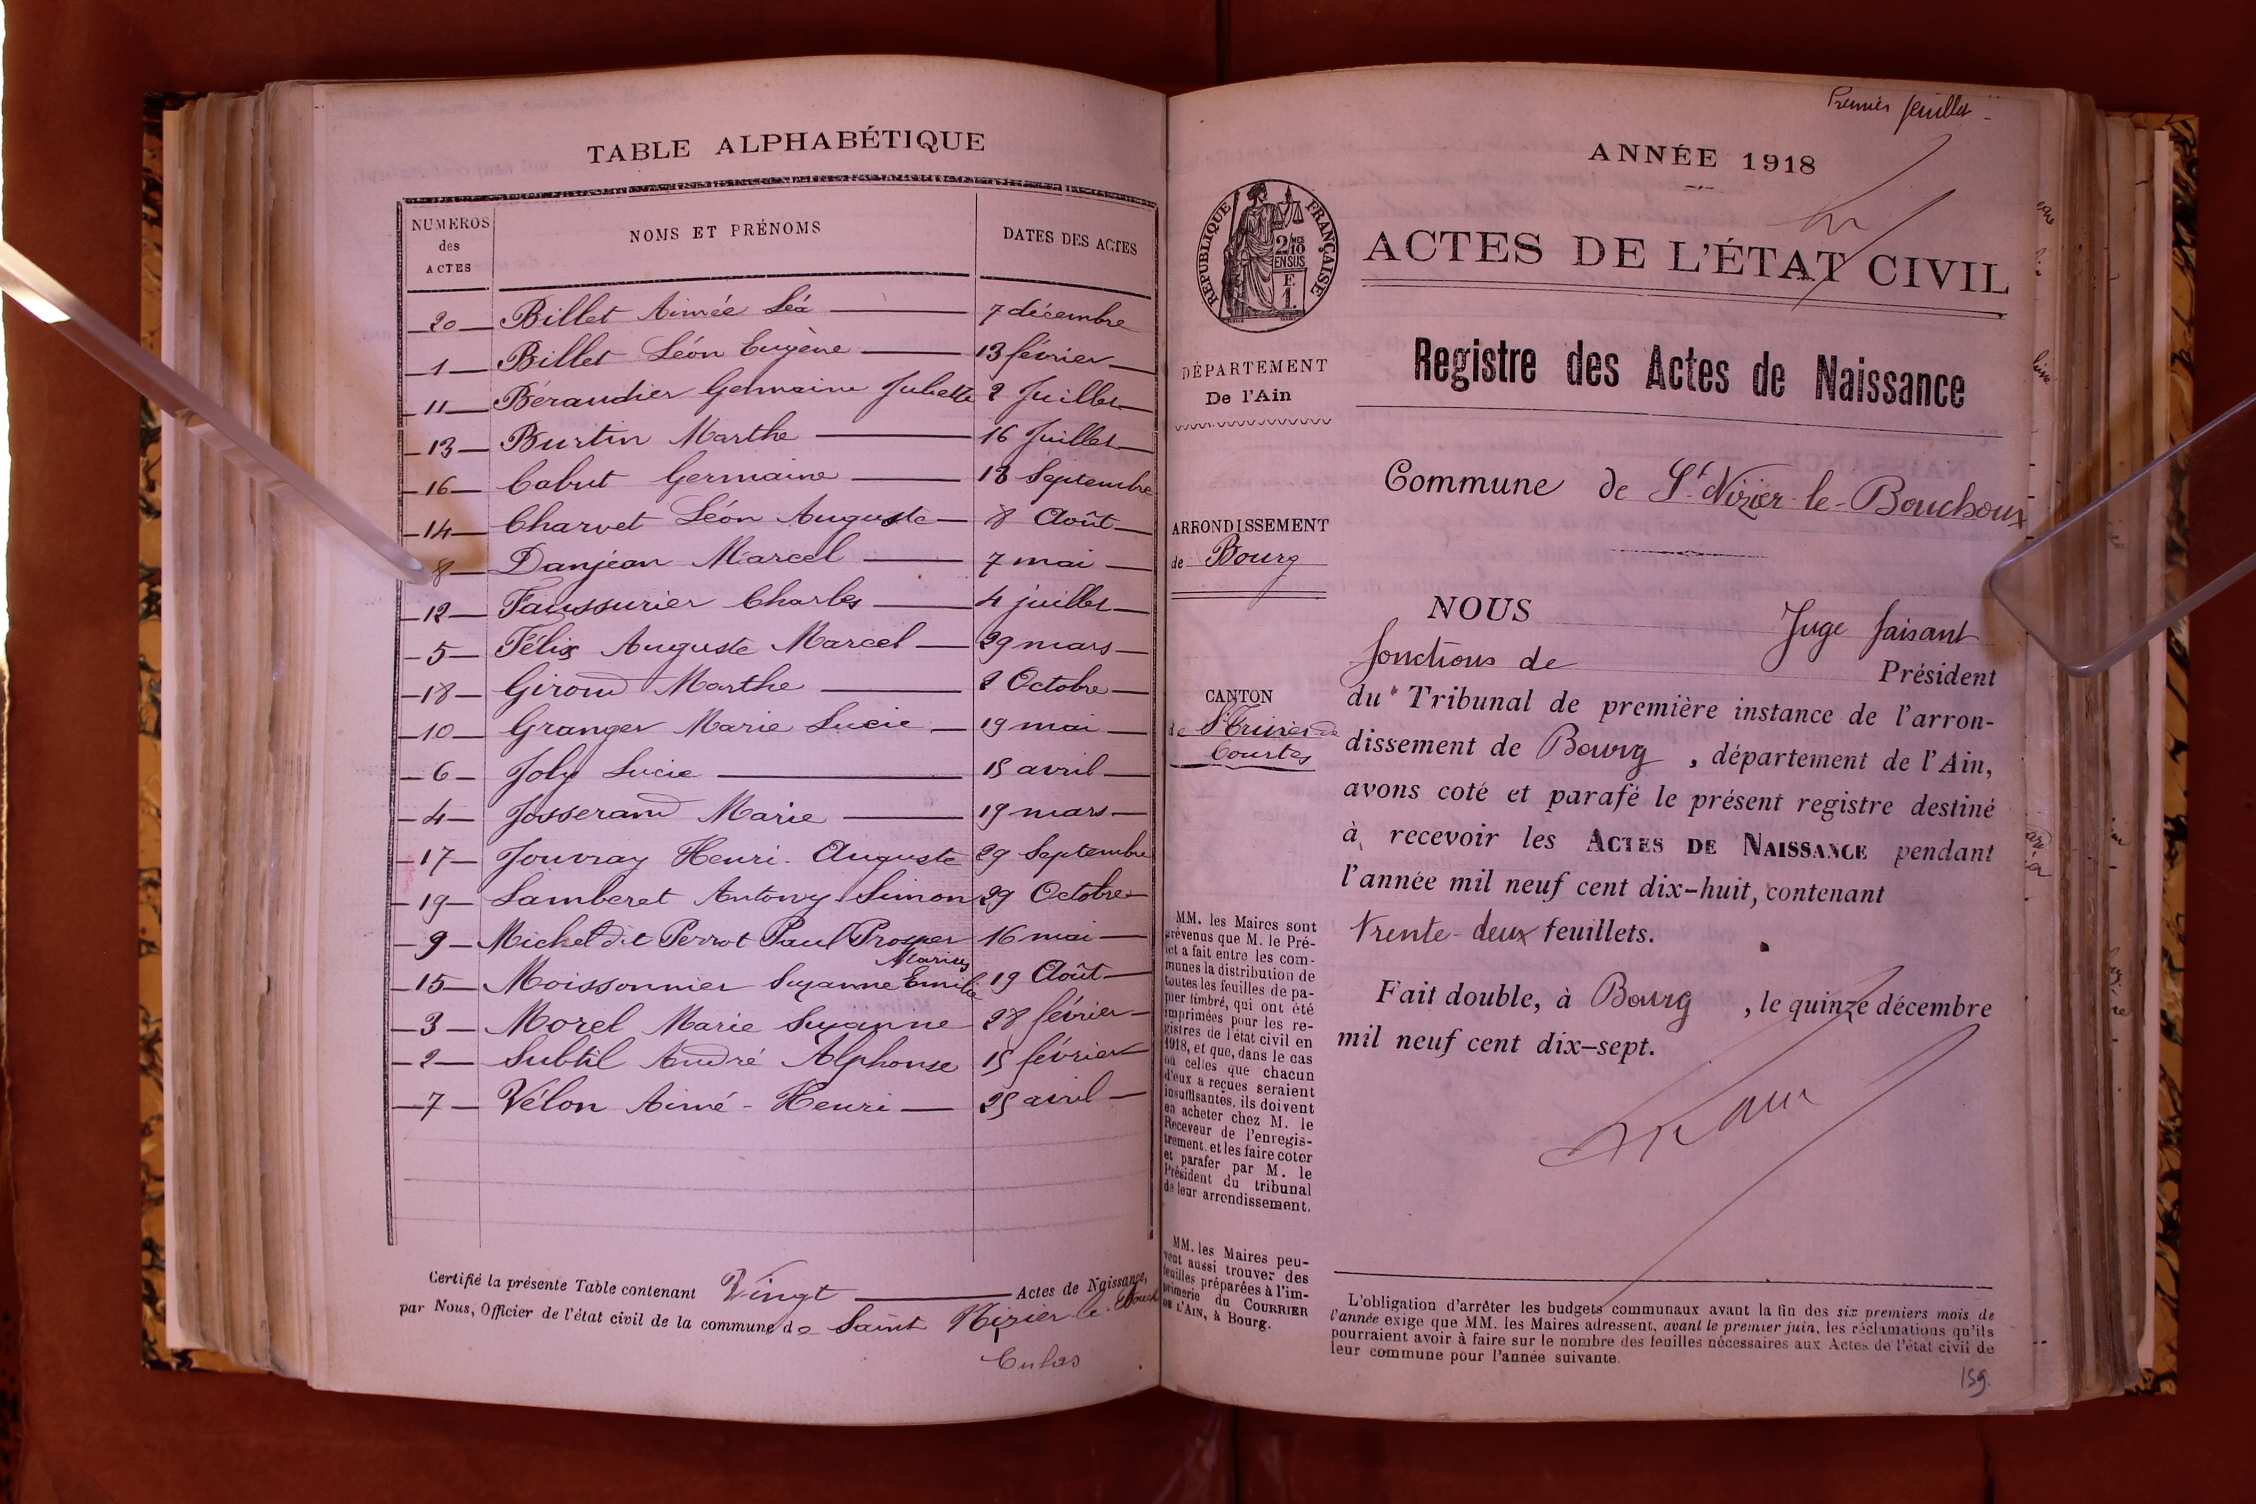 TABLE ALPHABÉTIQUE
NUMEROS
des
ACTES
NOMS ET PRÉNOMS
DATES DES ACTES
20 Billet Aimée Léa 7 décembre
1 Billet Léon Eugène 13 février
11 Béraudier Germaine Juliette 2 Juillet
13 Burtin Marthe 16 Juillet
16 Cabut Germaine 18 Septembre
14 Charvet Léon Auguste 8 Août
8 Danjean Marcel 7 mai
12 Faussurier Charles 4 juillet
5 Félix Auguste Marcel 29 mars
18 Giroud Marthe 2 Octobre
10 Granger Marie Lucie 19 mai
6 Joly Lucie 15 avril
4 Josserand Marie 19 mars
17 Jouvray Henri-Auguste 29 Septembre
19 Lamberet Antony Simon 29 Octobre
9 Michel dit Perrot Paul Prosper 16 mai
Marius
15 Moissonnier Suzanne Emilie 19 Août
3 Morel Marie Suzanne 28 février
2 Subtil André Alphonse 15 février
7 Vélon Aimé-Henri 25 avril
Certifié la présente Table contenant Vingt Actes de Naissance,
par Nous, Officier de l'état civil de la commune de Saint Nizier le Bouch
Premier feuillet
ANNÉE 1918
RÉPUBLIQUE FRANÇAISE
2/10
EN SUS
F.
1.
ACTES DE L'ÉTAT CIVIL
Registre des Actes de Naissance
DÉPARTEMENT
De l'Ain
Commune de St Nizier-le-Bouchoux
ARRONDISSEMENT
de Bourg
CANTON
de St Trivier de
Courtes
NOUS Juge faisant
fonctions de Président
du Tribunal de première instance de l'arron-
dissement de Bourg, département de l'Ain,
avons coté et parafé le présent registre destiné
à recevoir les ACTES DE NAISSANCE pendant
l'année mil neuf cent dix-huit, contenant
trente-deux feuillets.
Fait double, à Bourg, le quinze décembre
mil neuf cent dix-sept.
MM. les Maires sont
prévenus que M. le Pré-
fet a fait entre les com-
munes la distribution de
toutes les feuilles de pa-
pier timbré, qui ont été
imprimées pour les re-
gistres de l'état civil en
1918, et que, dans le cas
où celles que chacun
d'eux a reçues seraient
insuffisantes, ils doivent
en acheter chez M. le
Receveur de l'enregis-
trement, et les faire coter
et parafer par M. le
Président du tribunal
de leur arrondissement.
MM. les Maires peu-
vent aussi trouver des
feuilles préparées à l'im-
primerie du COURRIER
DE L'AIN, à Bourg.
L'obligation d'arrêter les budgets communaux avant la fin des six premiers mois de
l'année exige que MM. les Maires adressent, avant le premier juin, les réclamations qu'ils
pourraient avoir à faire sur le nombre des feuilles nécessaires aux Actes de l'état civil de
leur commune pour l'année suivante.
159.